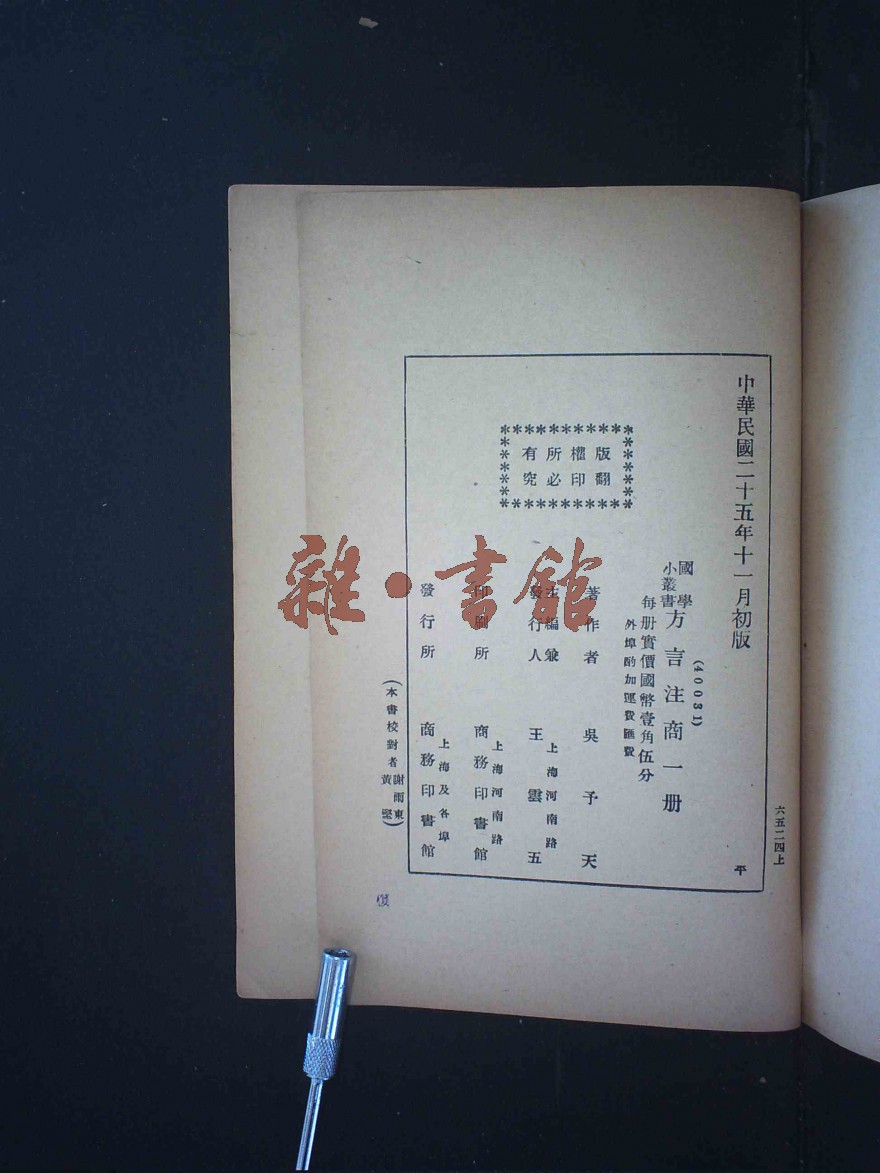 六五二四上
中華民國二十五年十一月初版
平
(40031)
國學
小叢書
方言注商一册
每册實價國幣壹角伍分
外埠酌加運費匯費
版權所有
翻印必究
著作者 吳予天
主編兼
發行人
上海河南路
王雲五
印刷所
上海河南路
商務印書館
發行所
上海及各埠
商務印書館
(本書校對者謝雨東
黃堅)
雜·書館